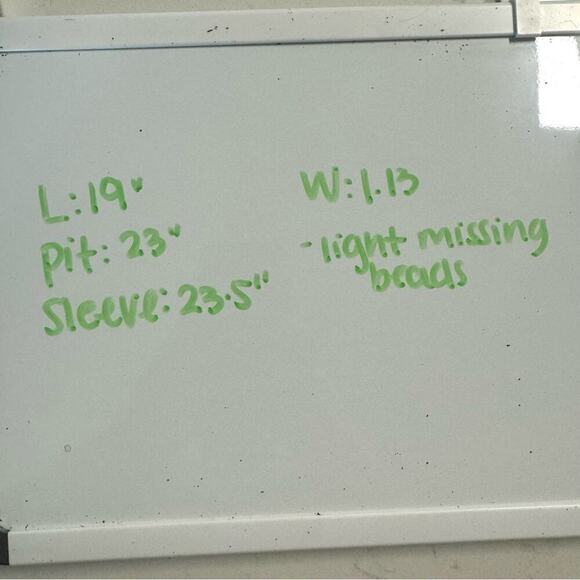 L: 19"
Pit: 23"
Sleeve: 23.5"
W: 1.13
- light missing
beads